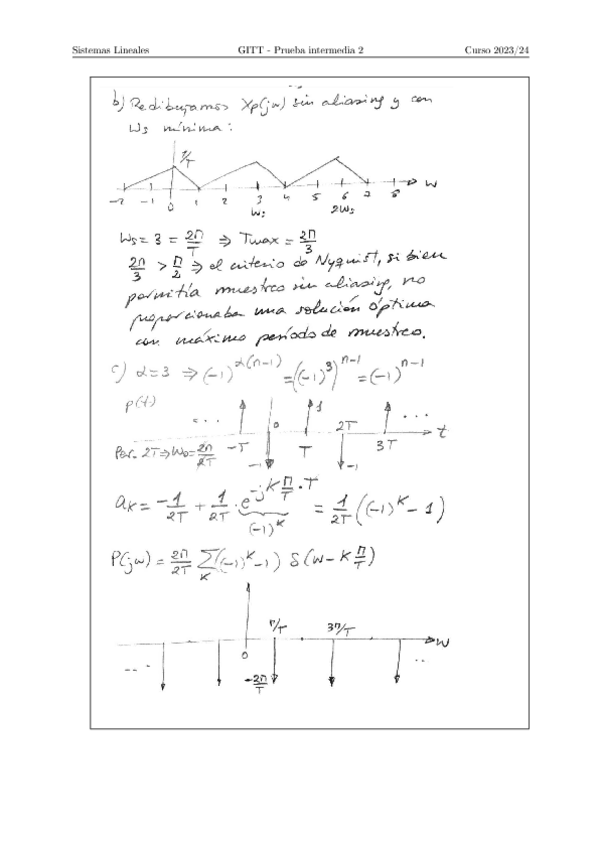 Sistemas Lineales GITT - Prueba intermedia 2 Curso 2023/24
b) Redibujamos Xp(jω) sin aliasing y con
ωs mínima:
1/T
-2 -1 0 1 2 3 4 5 6 7 8 ω
ωs 2ωs
ωs = 3 = 2π/T ⇒ Tmax = 2π/3
2π/3 > π/2 ⇒ el criterio de Nyquist, si bien
permitía muestreo sin aliasing, no
proporcionaba una solución óptima
con máximo período de muestreo.
c) α=3 ⇒ (-1)^α(n-1) = ((-1)^3)^n-1 = (-1)^n-1
p(t)
... 0 1 2T ...
Per. 2T ⇒ ω0 = 2π/2T -T -1 T -1 3T t
aK = -1/2T + 1/2T · e^-jKπ/T·T = 1/2T ((-1)^K - 1)
(-1)^K
P(jω) = 2π/2T Σ ((-1)^K - 1) δ(ω - Kπ/T)
K
π/T 3π/T
0 ω
... -2π/T ..